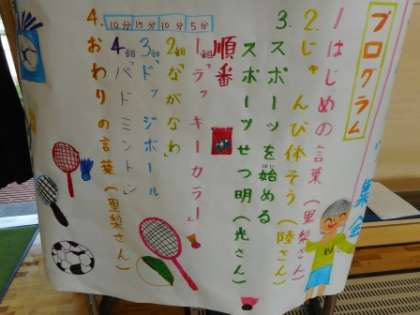 プログラム
集会
1はじめの言葉(里梨さん)
2.じゅんび体そう(陸さん)
3.スポーツを始める
スポーツせつ明(光さん)
順番
1番「ラッキーカラー」
2番「ながなわ」
3番「ドッジボール」
4番「バドミントン」
10分 15分 10分 5分
4.おわりの言葉(里梨さん)